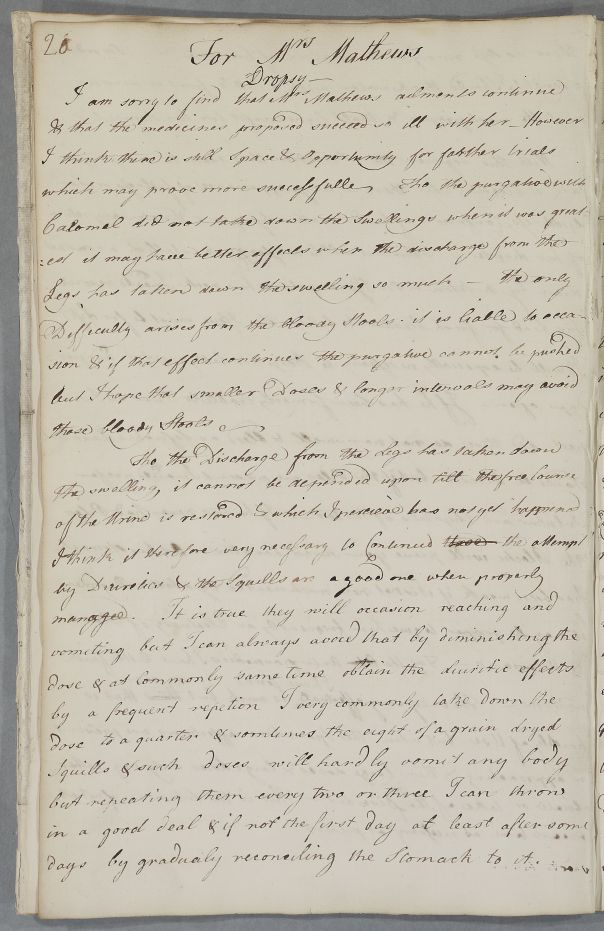 26
For Mrs Mathews
Dropsy –
I am sorry to find that Mrs Mathews ailments continue
& that the medicines proposed succeed so ill with her – However
I think there is still Space & Opportunity for farther trials
which may prove more successfulle Tho the purgative with
Calomel did not take down the Swellings when it was great
:est it may have better effects when the discharge from the
Legs has taken down the swelling so much – the only
Difficulty arises from the bloody Stools it is liable to occa-
sion & if that effect continues the purgative cannot be pushed
but I hope that smaller Doses & longer intervals may avoid
those bloody Stools
Tho the Discharge from the Legs has taken down
the swelling, it cannot be depended upon till the free Course
of the Urine is restored & which I perceive has not yet happend
I think it therefore very necessary to Continued the attempt
by Diuretics & the Squills are a good one when properly
managed. It is true they will occasion reaching and
vomiting but I can always avoid that by diminishing the
dose & at Commonly same time obtain the diuretic effects
by a frequent repition I very commonly take down the
dose to a quarter & somtimes the eight of a grain dryed
Squills & such doses will hardly vomit any body
but repeating them every two or three I can throw
in a good deal & if not the first day at least after some
days by gradualy reconciling the Stomach to it.